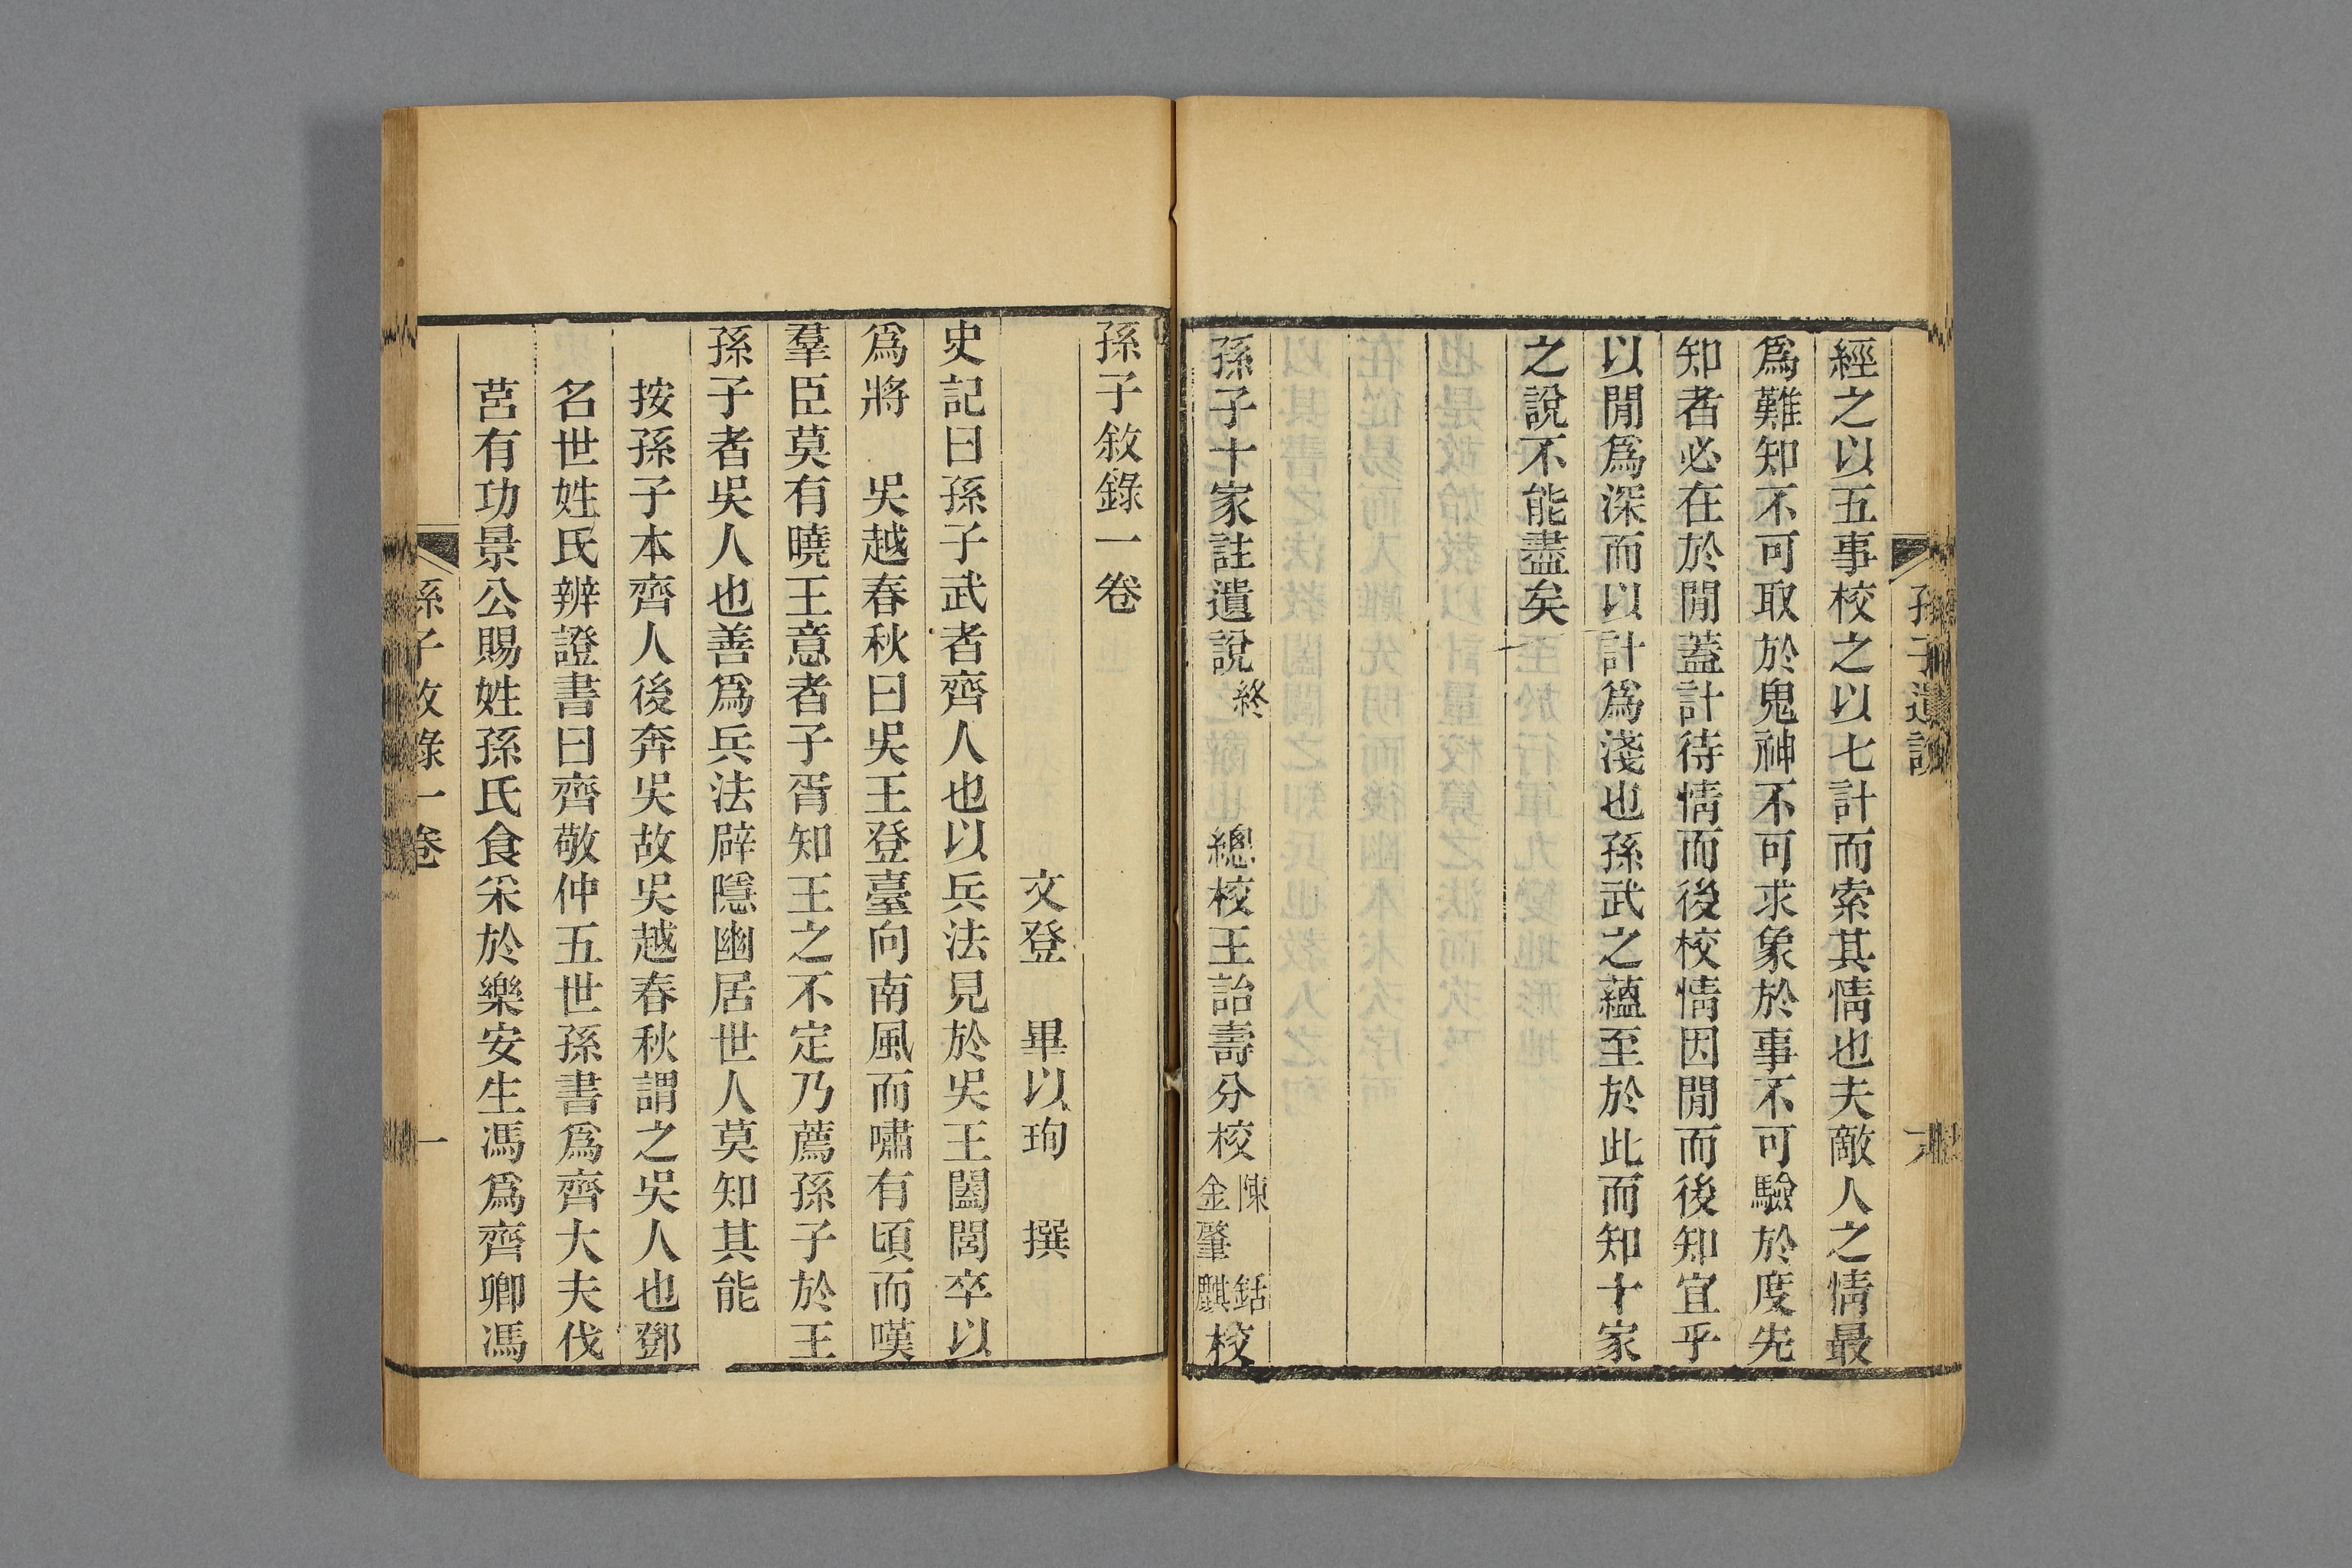 孫子遺說
經之以五事校之以七計而索其情也夫敵人之情最
爲難知不可取於鬼神不可求象於事不可驗於度先
知者必在於閒蓋計待情而後校情因閒而後知宜乎
以閒爲深而以計爲淺也孫武之蘊至於此而知十家
之說不能盡矣
孫子十家註遺說終 總校王詒壽分校陳銛金肇麒校
孫子敘錄一卷
文登 畢以珣 撰
史記曰孫子武者齊人也以兵法見於吳王闔閭卒以
爲將 吳越春秋曰吳王登臺向南風而嘯有頃而嘆
羣臣莫有曉王意者子胥知王之不定乃薦孫子於王
孫子者吳人也善爲兵法辟隱幽居世人莫知其能
按孫子本齊人後奔吳故吳越春秋謂之吳人也鄧
名世姓氏辨證書曰齊敬仲五世孫書爲齊大夫伐
莒有功景公賜姓孫氏食采於樂安生馮爲齊卿馮
孫子敘錄一卷 一